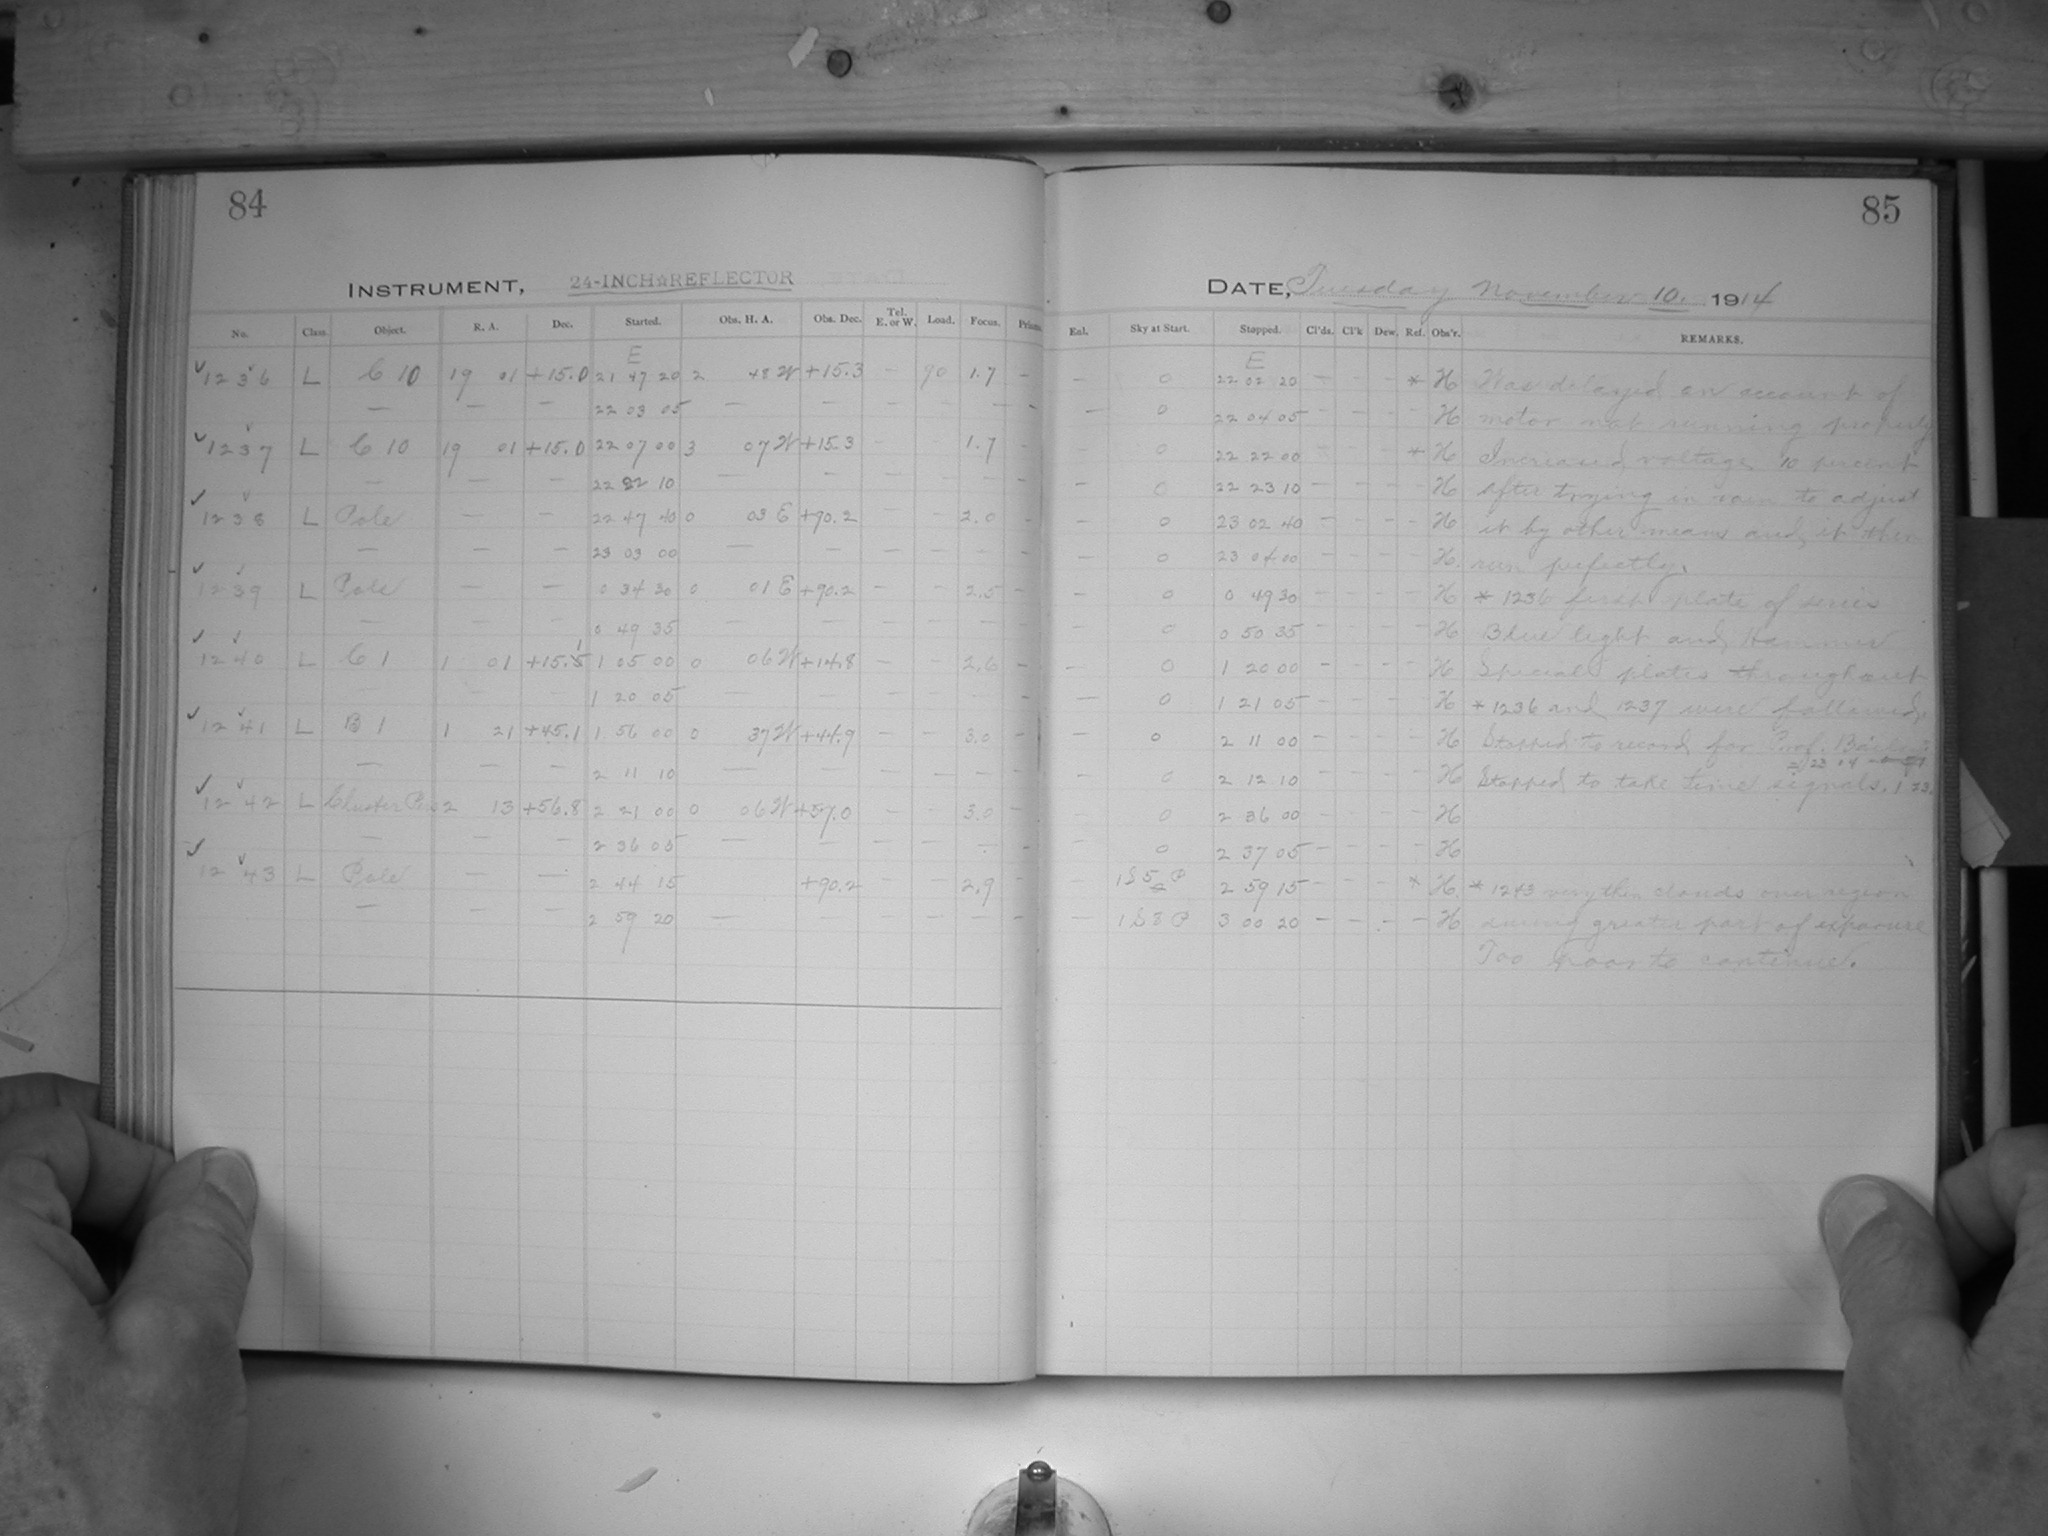 84
INSTRUMENT, 24-INCH☆REFLECTOR
No. Class. Object. R. A. Dec. Started. Obs. H. A. Obs. Dec. Tel. E. or W. Load. Focus.
E
1236 L C 10 19 01 +15.0 21 47 20 2 48 W +15.3 — 90 1.7 —
— — — 22 03 05 — — — — — —
1237 L C 10 19 01 +15.0 22 07 00 3 07 W +15.3 — 1.7 —
— — — 22 22 10 — — — — — —
1238 L Pole — — 22 47 40 0 03 E +90.2 — — 2.0 —
— — — 23 03 00 — — — — — —
1239 L Pole — — 0 34 30 0 01 E +90.2 — — 2.5 —
— — — 0 49 35 — — — — — —
1240 L C 1 1 01 +15.5 1 05 00 0 06 W +14.8 — — 2.6 —
— — — 1 20 05 — — — — — —
1241 L B 1 1 21 +45.1 1 56 00 0 37 W +44.9 — — 3.0 —
— — — 2 11 10 — — — — — —
1242 L Cluster Pers 2 13 +56.8 2 21 00 0 06 W +57.0 — — 3.0 —
— — — 2 36 05 — — — — — —
1243 L Pole — — 2 44 15 +90.2 — — 2.9 —
— — — 2 59 20 — — — — — —
85
DATE, Tuesday November 10. 1914
Enl. Sky at Start. Stopped. Cl'ds. Cl'k Dew. Ref. Obs'r. REMARKS.
E
— 0 22 02 20 — — — * H Was delayed on account of
— 0 22 04 05 — — — H motor not running properly
— 0 22 22 00 — — — * H Increased voltage 10 percent
— 0 22 23 10 — — — — H after trying in vain to adjust
— 0 23 02 40 — — — — H it by other means and it then
— 0 23 04 00 — — — — H. run perfectly.
— 0 0 49 30 — — — — H * 1236 first plate of series
— 0 0 50 35 — — — — H Blue light and Hammer
— 0 1 20 00 — — — — H Special plates throughout
— 0 1 21 05 — — — — H * 1236 and 1237 were followed.
— 0 2 11 00 — — — — H Stopped to record for Prof. Bailey
— 0 2 12 10 — — — — H Stopped to take time signals.
— 0 2 36 00 — — — — H
— 0 2 37 05 — — — — H
— 1 S 5 P 2 59 15 — — — * H. * 1243 very thin clouds over region
— 1 S 8 P 3 00 20 — — — — H during greater part of exposure
Too poor to continue.